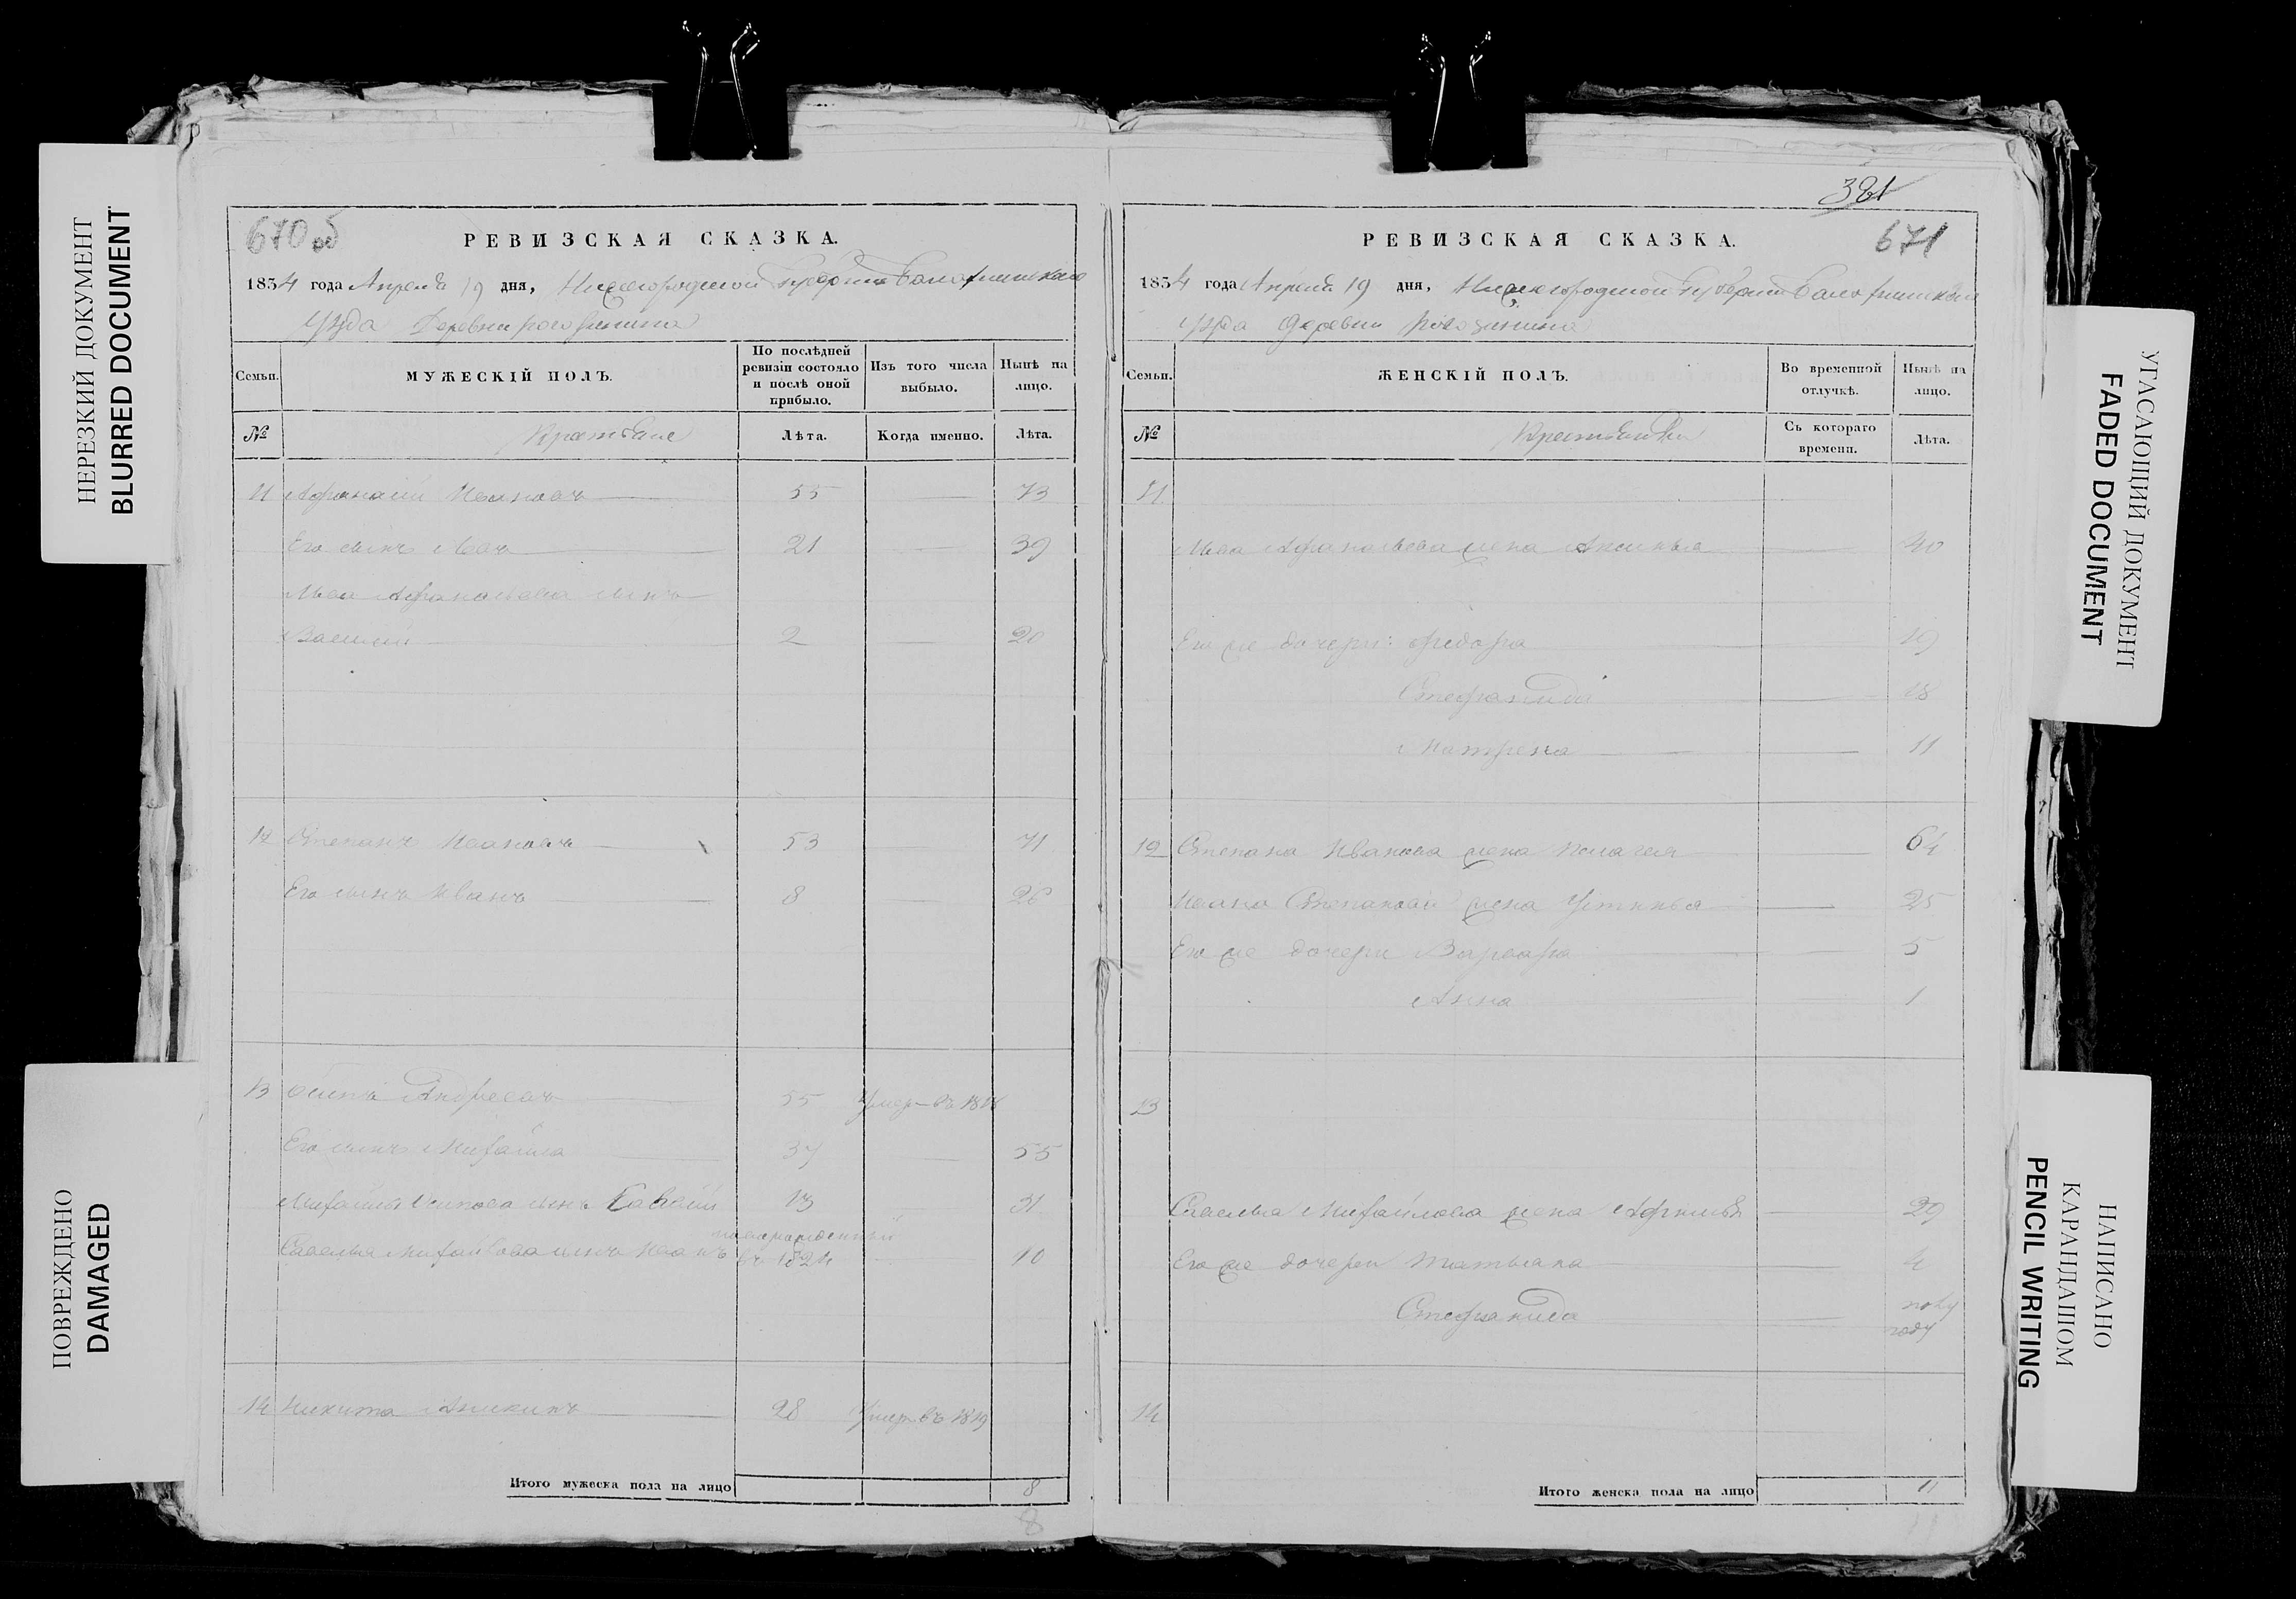 НЕРЕЗКИЙ ДОКУМЕНТ
BLURRED DOCUMENT
ПОВРЕЖДЕНО
DAMAGED
670 об
РЕВИЗСКАЯ СКАЗКА.
1854 года Апреля 19 дня, Нижегородской Губернии Балахнинскаго
Уѣзда Деревни
Семьи.
МУЖЕСКІЙ ПОЛЪ.
По послѣдней ревизіи состояло и послѣ оной прибыло.
Изъ того числа выбыло.
Нынѣ на лицо.
№
Крестьяне
Лѣта.
Когда именно.
Лѣта.
11 Афанасій Ивановъ 55 73
Его сынъ 21 39
Афанасьева сынъ
Василій 2 20
12 Степанъ Ивановъ 53 71
Его сынъ Иванъ 8 26
13 Осипъ Андреевъ 55 Умер въ
Его сынъ Михайла 37 55
Михайлы Осипова сынъ Савелій 13 31
новорожденный
Савелья Михайлова сынъ Иванъ 10
14 Никита 28 Умер въ
Итого мужеска пола на лицо 8
8
381
671
РЕВИЗСКАЯ СКАЗКА.
1854 года Апреля 19 дня, Нижегородской Губернии Балахнинскаго
Уѣзда Деревни
Семьи.
ЖЕНСКІЙ ПОЛЪ.
Во временной отлучкѣ.
Нынѣ на лицо.
№
Крестьянки
Съ котораго времени.
Лѣта.
11
Афанасьева жена Аксинья 40
Его же дочери: Федора 19
Степанида 18
Матрена 11
12 Степана Иванова жена Пелагея 64
Ивана Степанова жена Устинья 25
Его же дочери Варвара 5
Анна 1
13
Савелья Михайлова жена 29
Его же дочери Татьяна 4
Степанида полу
году
14
Итого женска пола на лицо 11
УГАСАЮЩИЙ ДОКУМЕНТ
FADED DOCUMENT
НАПИСАНО
КАРАНДАШОМ
PENCIL WRITING